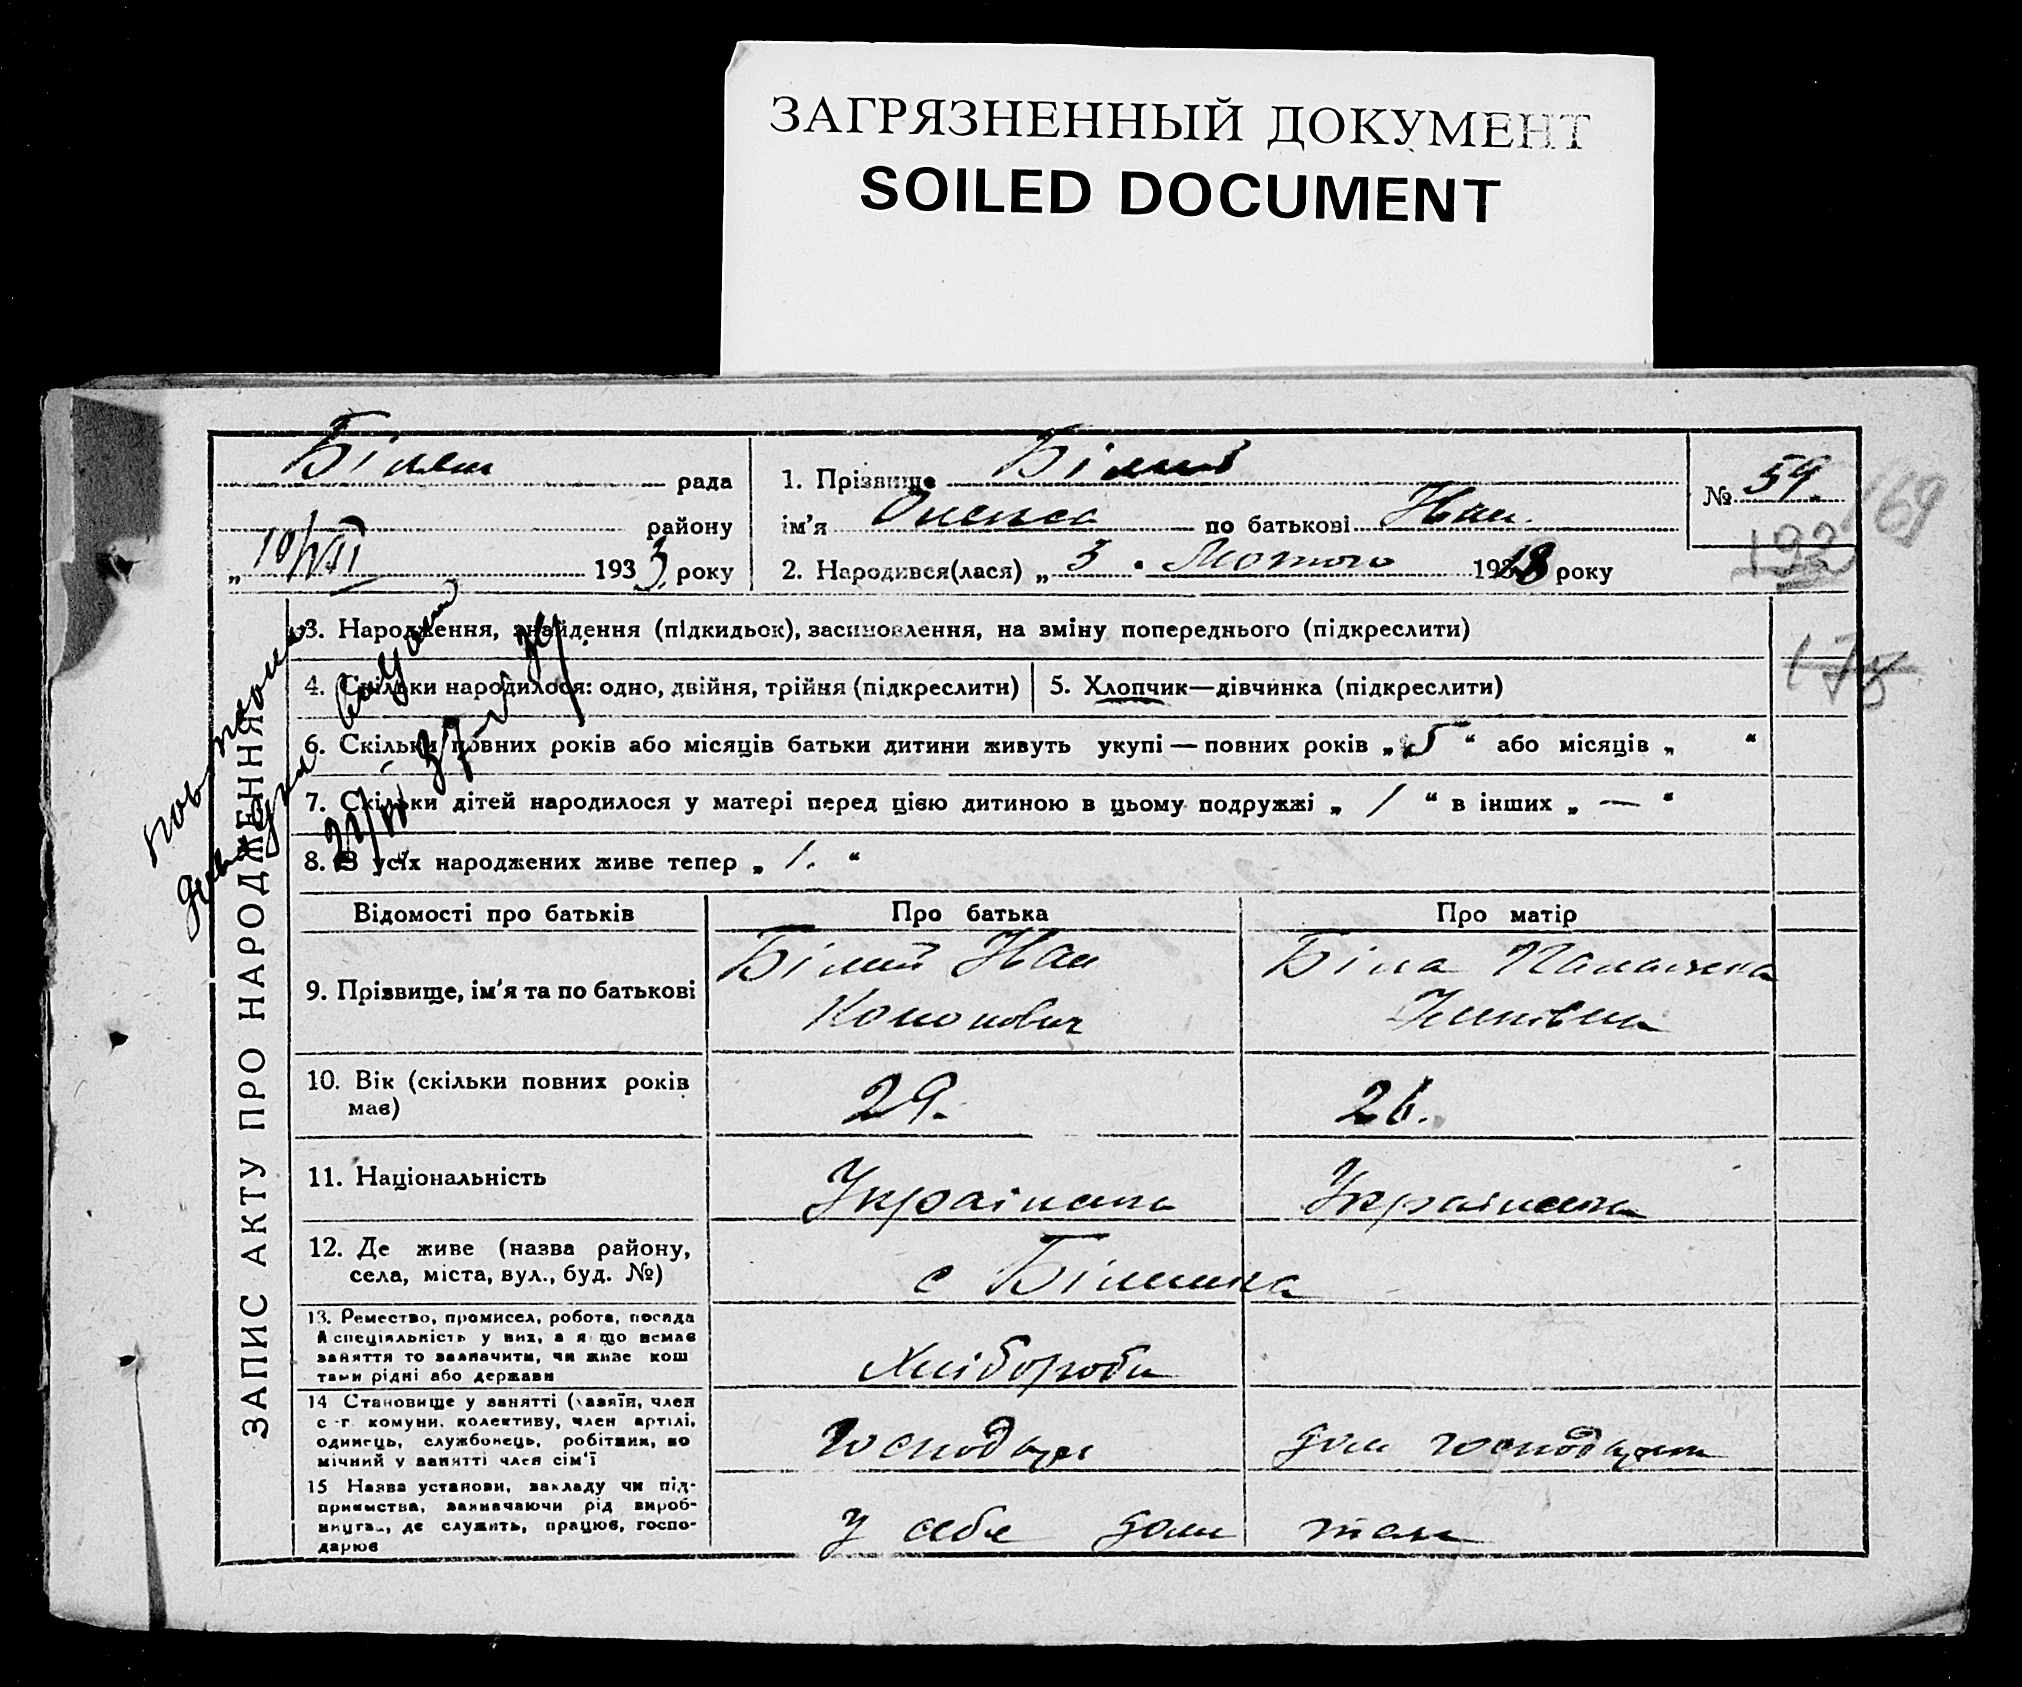 ЗАГРЯЗНЕННЫЙ ДОКУМЕНТ
SOILED DOCUMENT
рада
району
„ 10/VII 1933 року
1. Прізвище Білий
ім'я по батькові Ив
2. Народився(лася) „ 3 " Лютого року
№ 59
169
192
175
ЗАПИС АКТУ ПРО НАРОДЖЕННЯ
3. Народження, знайдення (підкидьок), засиновлення, на зміну попереднього (підкреслити)
4. Скільки народилося: одно, двійня, трійня (підкреслити)
5. Хлопчик—дівчинка (підкреслити)
6. Скільки повних років або місяців батьки дитини живуть укупі — повних років „ 5 “ або місяців „ “
7. Скільки дітей народилося у матері перед цією дитиною в цьому подружжі „ 1 “ в інших „ — “
8. З усіх народжених живе тепер „ 1. “
Відомості про батьків Про батька Про матір
9. Прізвище, ім'я та по батькові
Білий Біла
Кононович
10. Вік (скільки повних років
має)
29. 26.
11. Національність
Українець Українка
12. Де живе (назва району,
села, міста, вул., буд. №)
с
13. Ремество, промисел, робота, посада
й спеціяльність у них, а якщо немає
заняття то зазначити, чи живе кош
тами рідні або держави
Хлібороби
14 Становище у занятті (хазяїн, член
с.-г. комуни, колективу, член артілі,
одинець, службовець, робітник, по
мічний у занятті член сім'ї
Господар дом господарка
15 Назва установи, закладу чи під-
приємства, зазначаючи рід вироб-
ництва, де служить, працює, госпо-
дарює
У себе дома